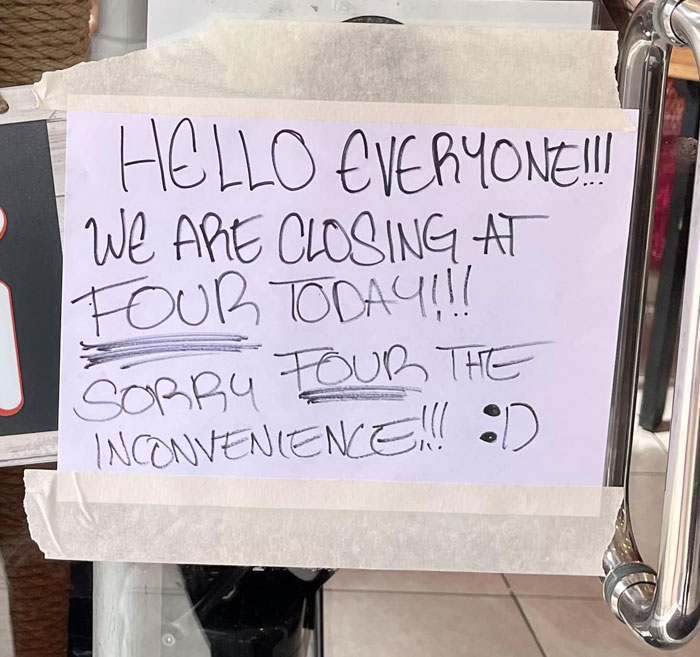 HELLO EVERYONE!!!
WE ARE CLOSING AT
FOUR TODAY!!!
SORRY FOUR THE
INCONVENIENCE!!! :D